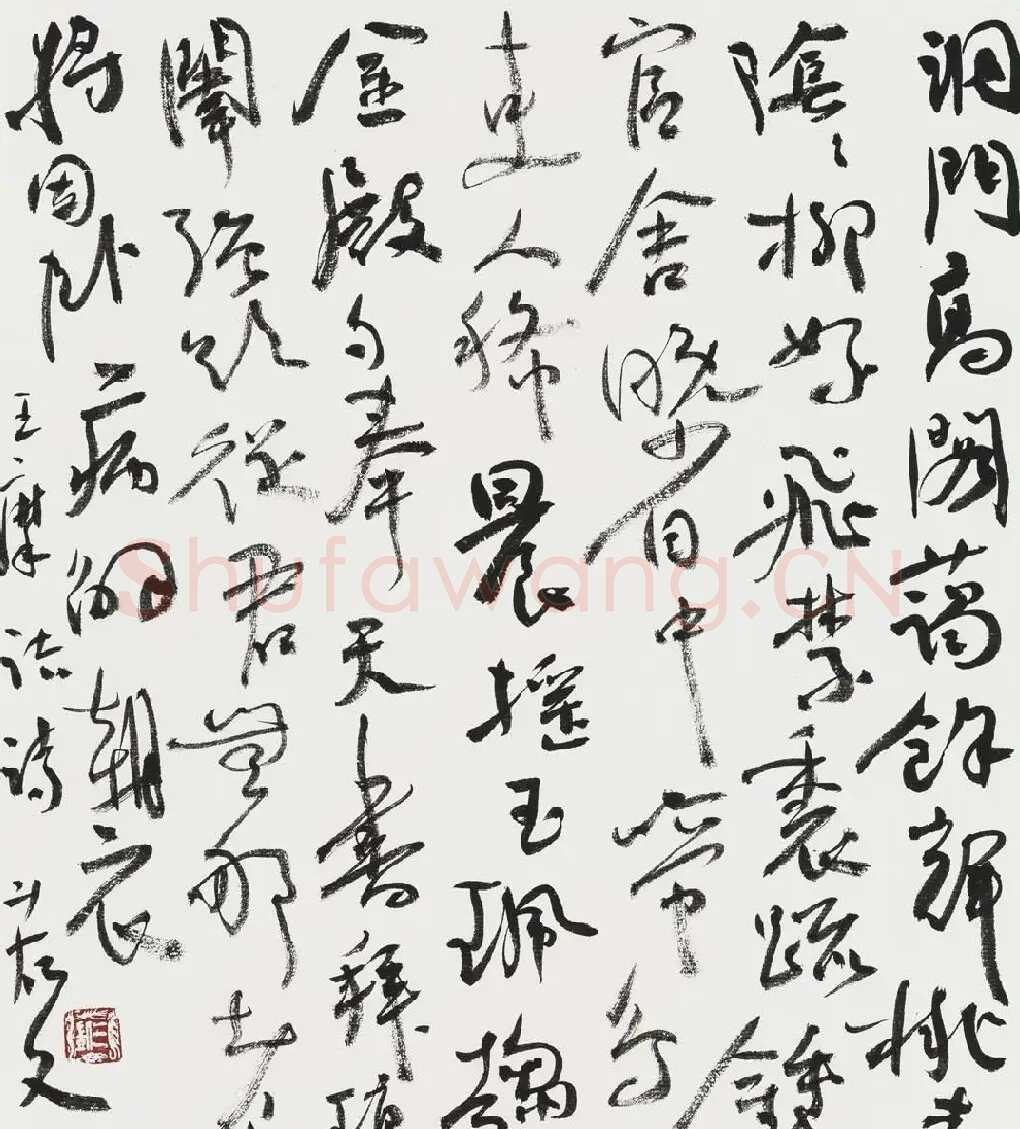 洞門高閣藹餘輝桃李
陰〻柳絮飛禁裏疏鐘
官舍晚省中啼鳥
吏人稀晨搖玉珮趨
金殿夕奉天書拜瑣
闈強欲從君無那老
將因臥病解朝衣
王摩詰詩
Shufawang.CN